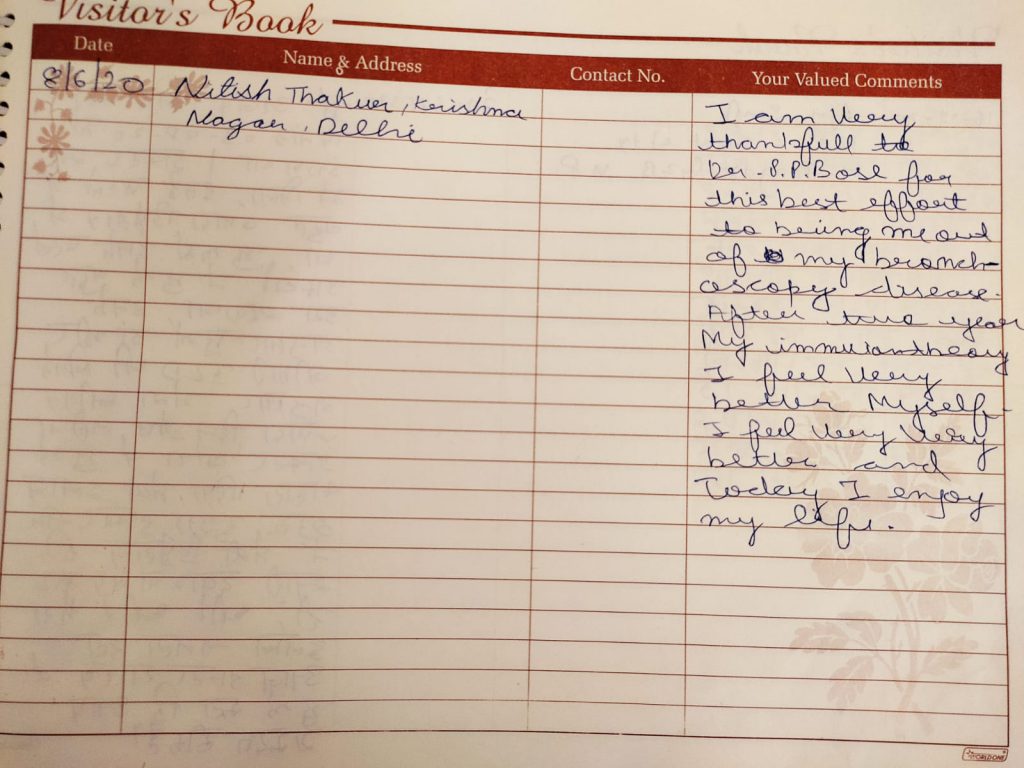 Visitor's Book
Date Name & Address Contact No. Your Valued Comments
8/6/20 Nitish Thakur, Krishna
Nagar, Delhi
I am Very
thankfull to
Dr. S.P. Bose for
this best effort
to bring me out
of my bronch-
oscopy disease.
After true year
My immuiontheory
I feel Very
better Myself-
I feel Very Very
better and
Today I enjoy
my life.
WORLDONE